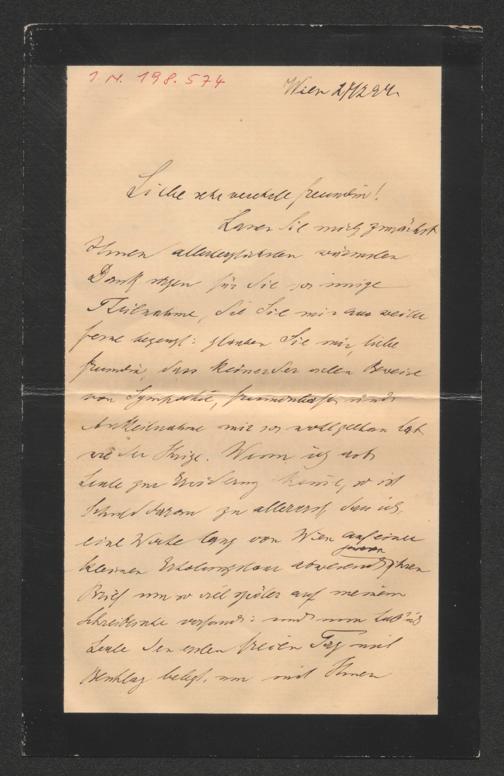 I. N. 198.574
Wien 24/2 94.
Liebe sehr verehrte Freundin!
Lassen Sie mich zunächst
Ihnen allerherzlichsten wärmsten
Dank sagen für die so innige
Theilnahme, die Sie mir aus weiter
Ferne bezeugt: glauben Sie mir, liebe
Freundin, dass keiner der vielen Beweise
von Sympathie, und
Antheilnahme mir so wohlgethan hat
wie der Ihrige. Wenn ich erst
heute zur Erwiderung komme, so ist
Schuld daran zu allererst dass ich
eine Woche lang von Wien auf einer
kleinen Erholungstour abwesend Ihren
Brief um so viel später auf meinem
Schreibtische vorfand: und nun hab' ich
heute den ersten freien Tag mit
Beschlag belegt, um mit Ihnen